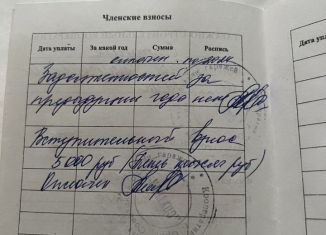 Членские взносы
Дата уплаты За какой год Сумма Роспись
Задолженностей за
предыдущие года нет
Вступительный взнос
5000 руб (Пять тысяч руб)
Оплачен